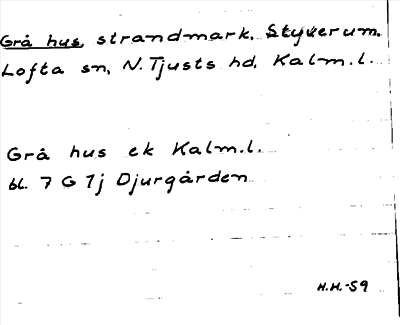 Grå hus, strandmark. Styverum.
Lofta sn, N. Tjusts hd, Kalm.l.
Grå hus ek Kalm.l.
bl. 7 G 7j Djurgården
H.H.-59